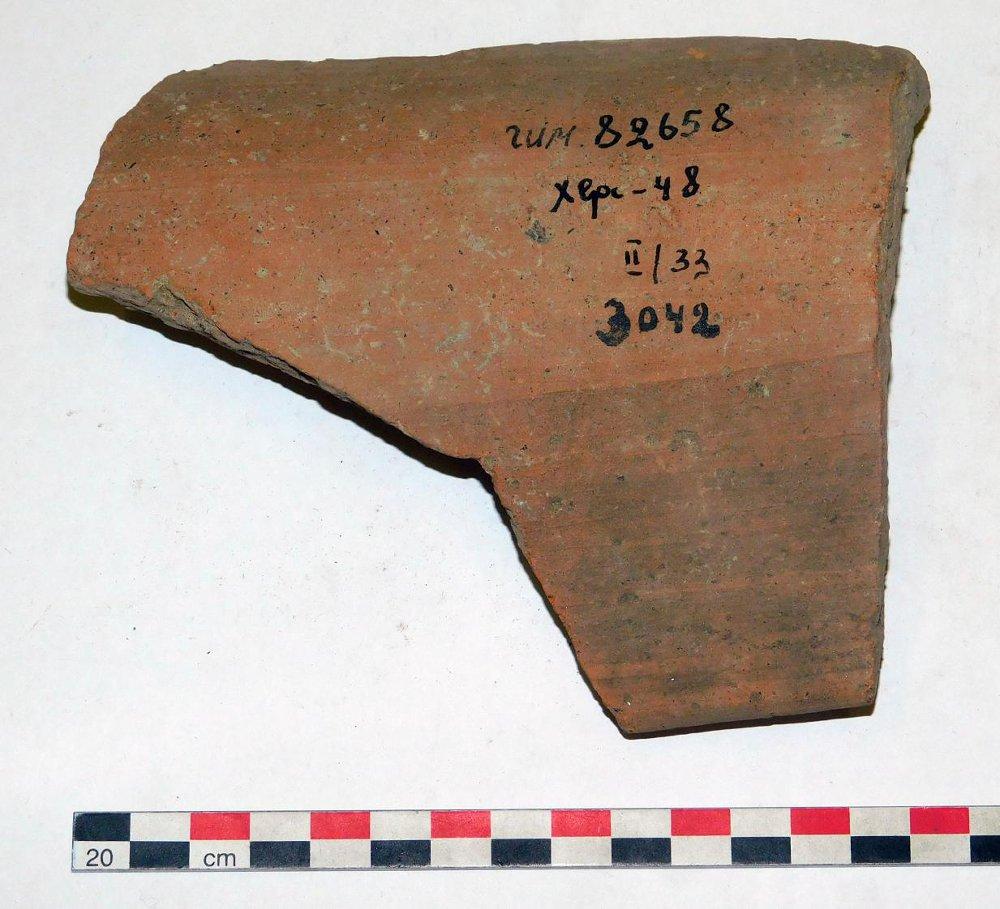 гим. 82658
херс-48
II/33
3042
20 cm